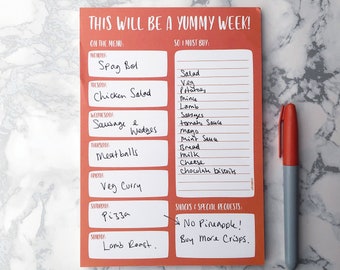 THIS WILL BE A YUMMY WEEK!
ON THE MENU:
MONDAY:
Spag Bol
TUESDAY:
Chicken Salad
WEDNESDAY:
Sausage &
Wedges
THURSDAY:
Meatballs
FRIDAY:
Veg Curry
SATURDAY:
Pizza
SUNDAY:
Lamb Roast.
SO I MUST BUY:
Salad
Veg
Potatoes
Mince
Lamb
Sausages
tomato Sauce
Mayo
Mint Sauce
Bread
Milk
Cheese
chocolate biscuits
SNACKS & SPECIAL REQUESTS:
No Pineapple!
Buy More Crisps.